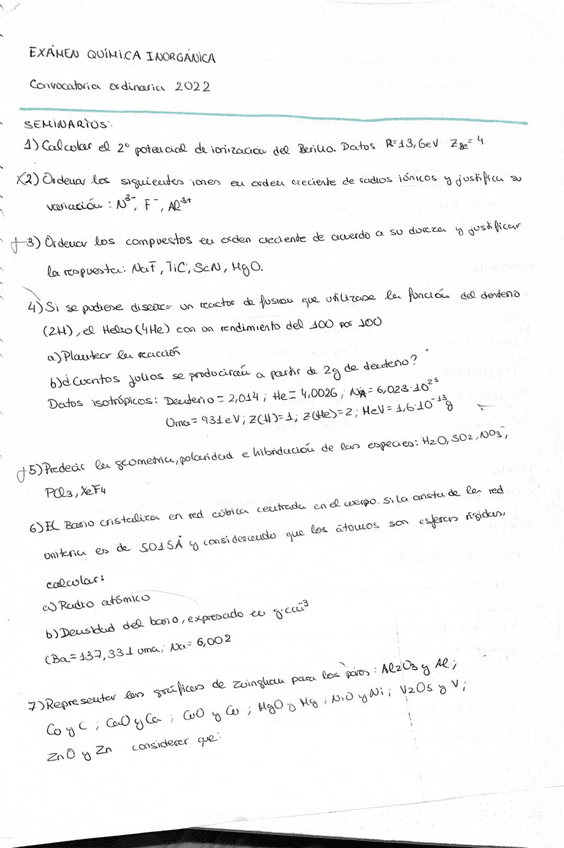 EXÁMEN QUÍMICA INORGÁNICA
Convocatoria ordinaria 2022
SEMINARIOS:
1) Calcular el 2º potencial de ionizacion del Berilio. Datos R=13,6eV ZBe=4
X2) Ordenar los siguientes iones en orden creciente de radios iónicos y justifica su
variación: N³⁻, F⁻, Al³⁺
+3) Ordenar los compuestos en orden creciente de acuerdo a su dureza y justificar
la respuesta: NaF, TiC, ScN, MgO.
4) Si se pudiese diseñar un reactor de fusion que utilizase la función del deuterio
(2H), el Helio (4He) con un rendimiento del 100 por 100
a) Plantear la reacción
b) ¿Cuantos julios se producirán a partir de 2g de deuterio?
Datos isotrópicos: Deuterio = 2,014; He = 4,0026; NA = 6,023·10²³
Uma = 931eV; Z(H)=1; Z(He)=2; MeV=1,6·10⁻¹³g
+5) Predecir la geometria, polaridad e hibridación de las especies: H2O, SO2, NO3⁻,
PCl3, XeF4
6) El Bario cristaliza en red cúbica centrada en el cuerpo. si la arista de la red
unitaria es de 5015Å y considerando que los átomos son esferas rígidas,
calcular:
a) Radio atómico
b) Densidad del bario, expresado en g·cm⁻³
(Ba=137,331 uma; Na= 6,002
7) Representar las gráficas de Zwinghan para los pares: Al2O3 y Al;
CO y C; CaO y Ca; CuO y Cu; MgO y Mg; NiO y Ni; V2O5 y V;
ZnO y Zn considerar que: